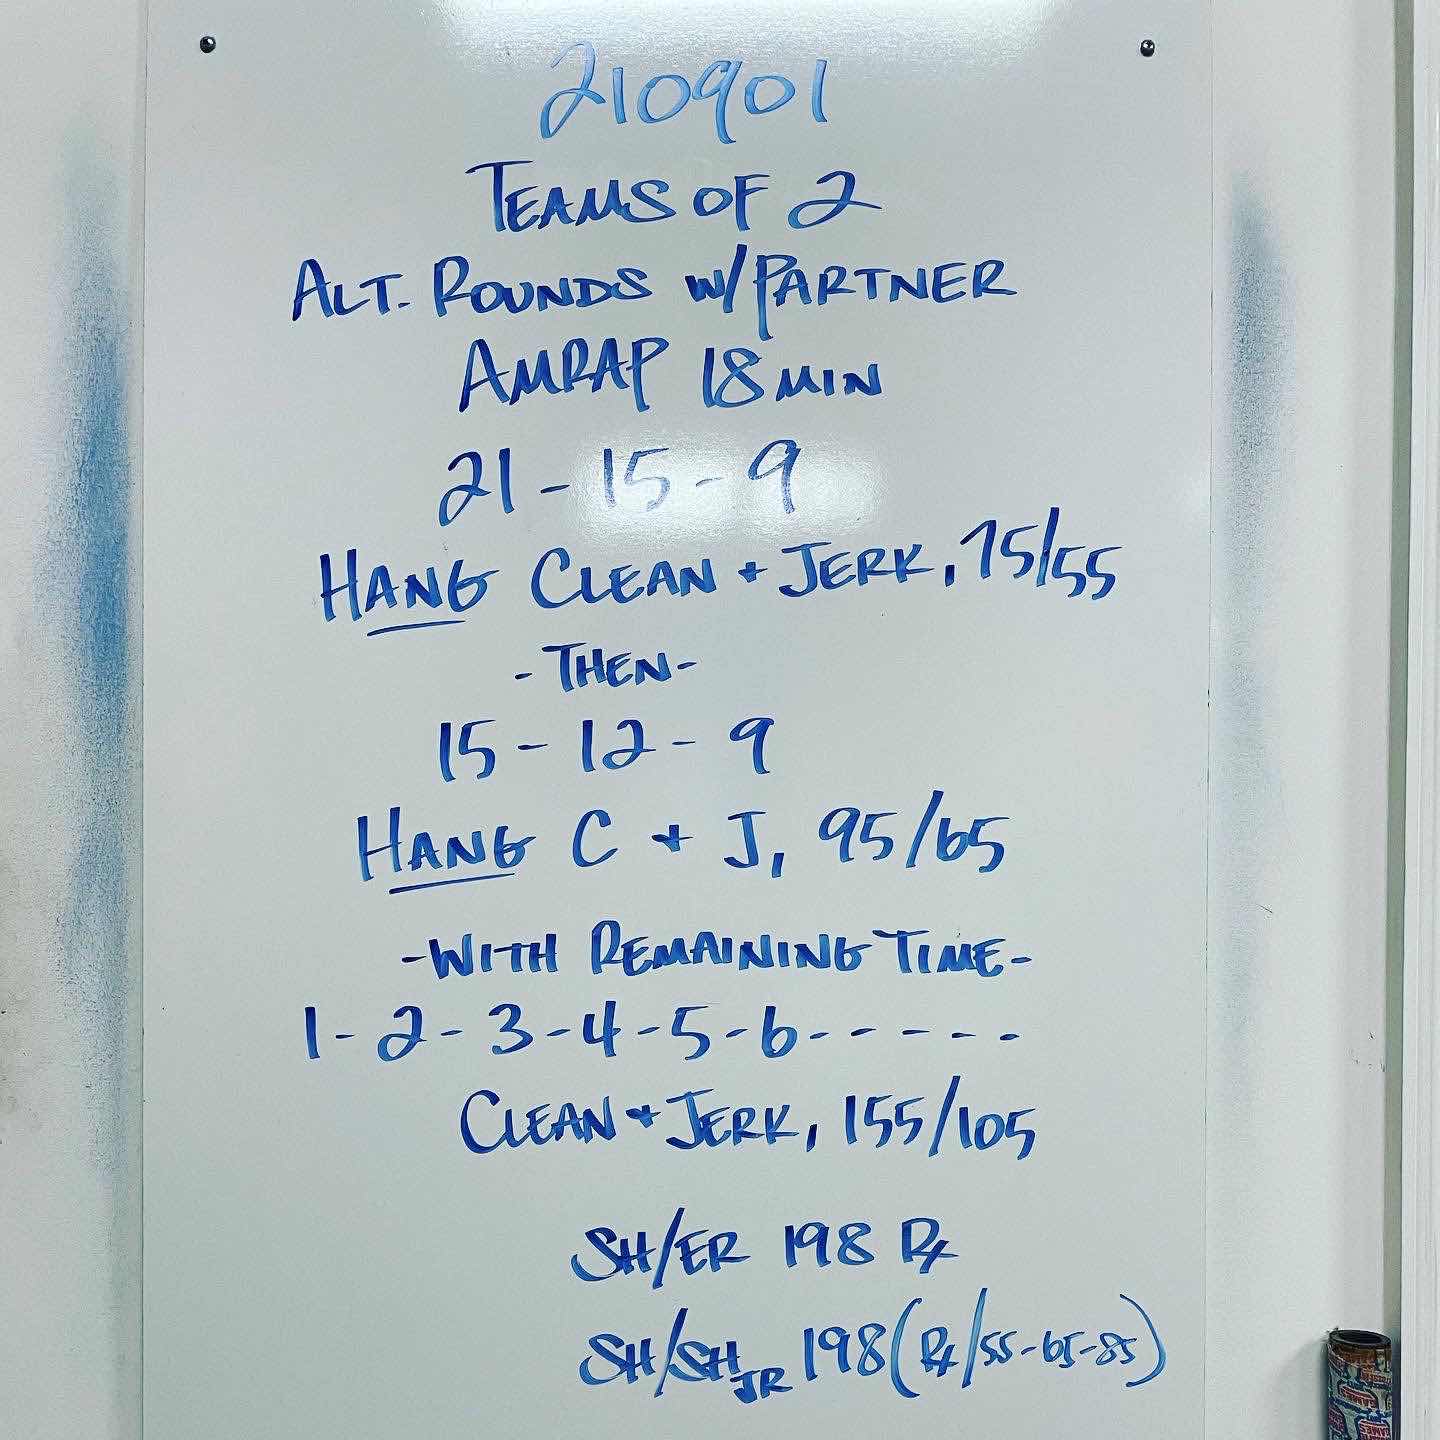 210901
TEAMS OF 2
ALT. ROUNDS W/PARTNER
AMRAP 18 MIN
21 - 15 - 9
HANG CLEAN + JERK, 75/55
- THEN -
15 - 12 - 9
HANG C + J, 95/65
- WITH REMAINING TIME -
1 - 2 - 3 - 4 - 5 - 6 - - - - -
CLEAN + JERK, 155/105
SH/ER 198 Rx
SH/SH JR 198 (Rx/55-65-85)